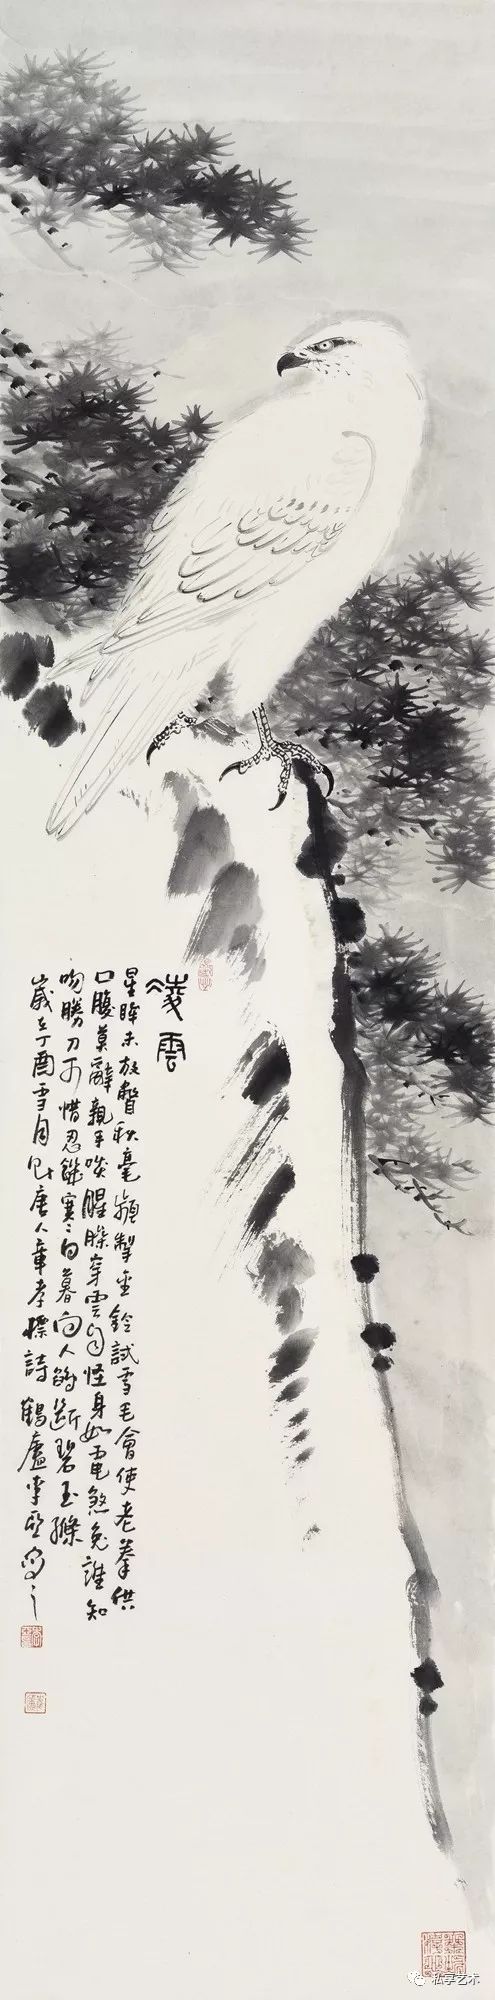 凌雲
星眸未放瞥秋毫頻掣金鈴試雪毛會使老拳供
口腹莫辭親手啖腥臊穿雲自怪身如電煞兔誰知
吻勝刀可惜忍饑寒日暮向人鵮斷碧玉絛
歲在丁酉雪月唐人章孝標詩 鶴廬李亞寫之
私享艺术